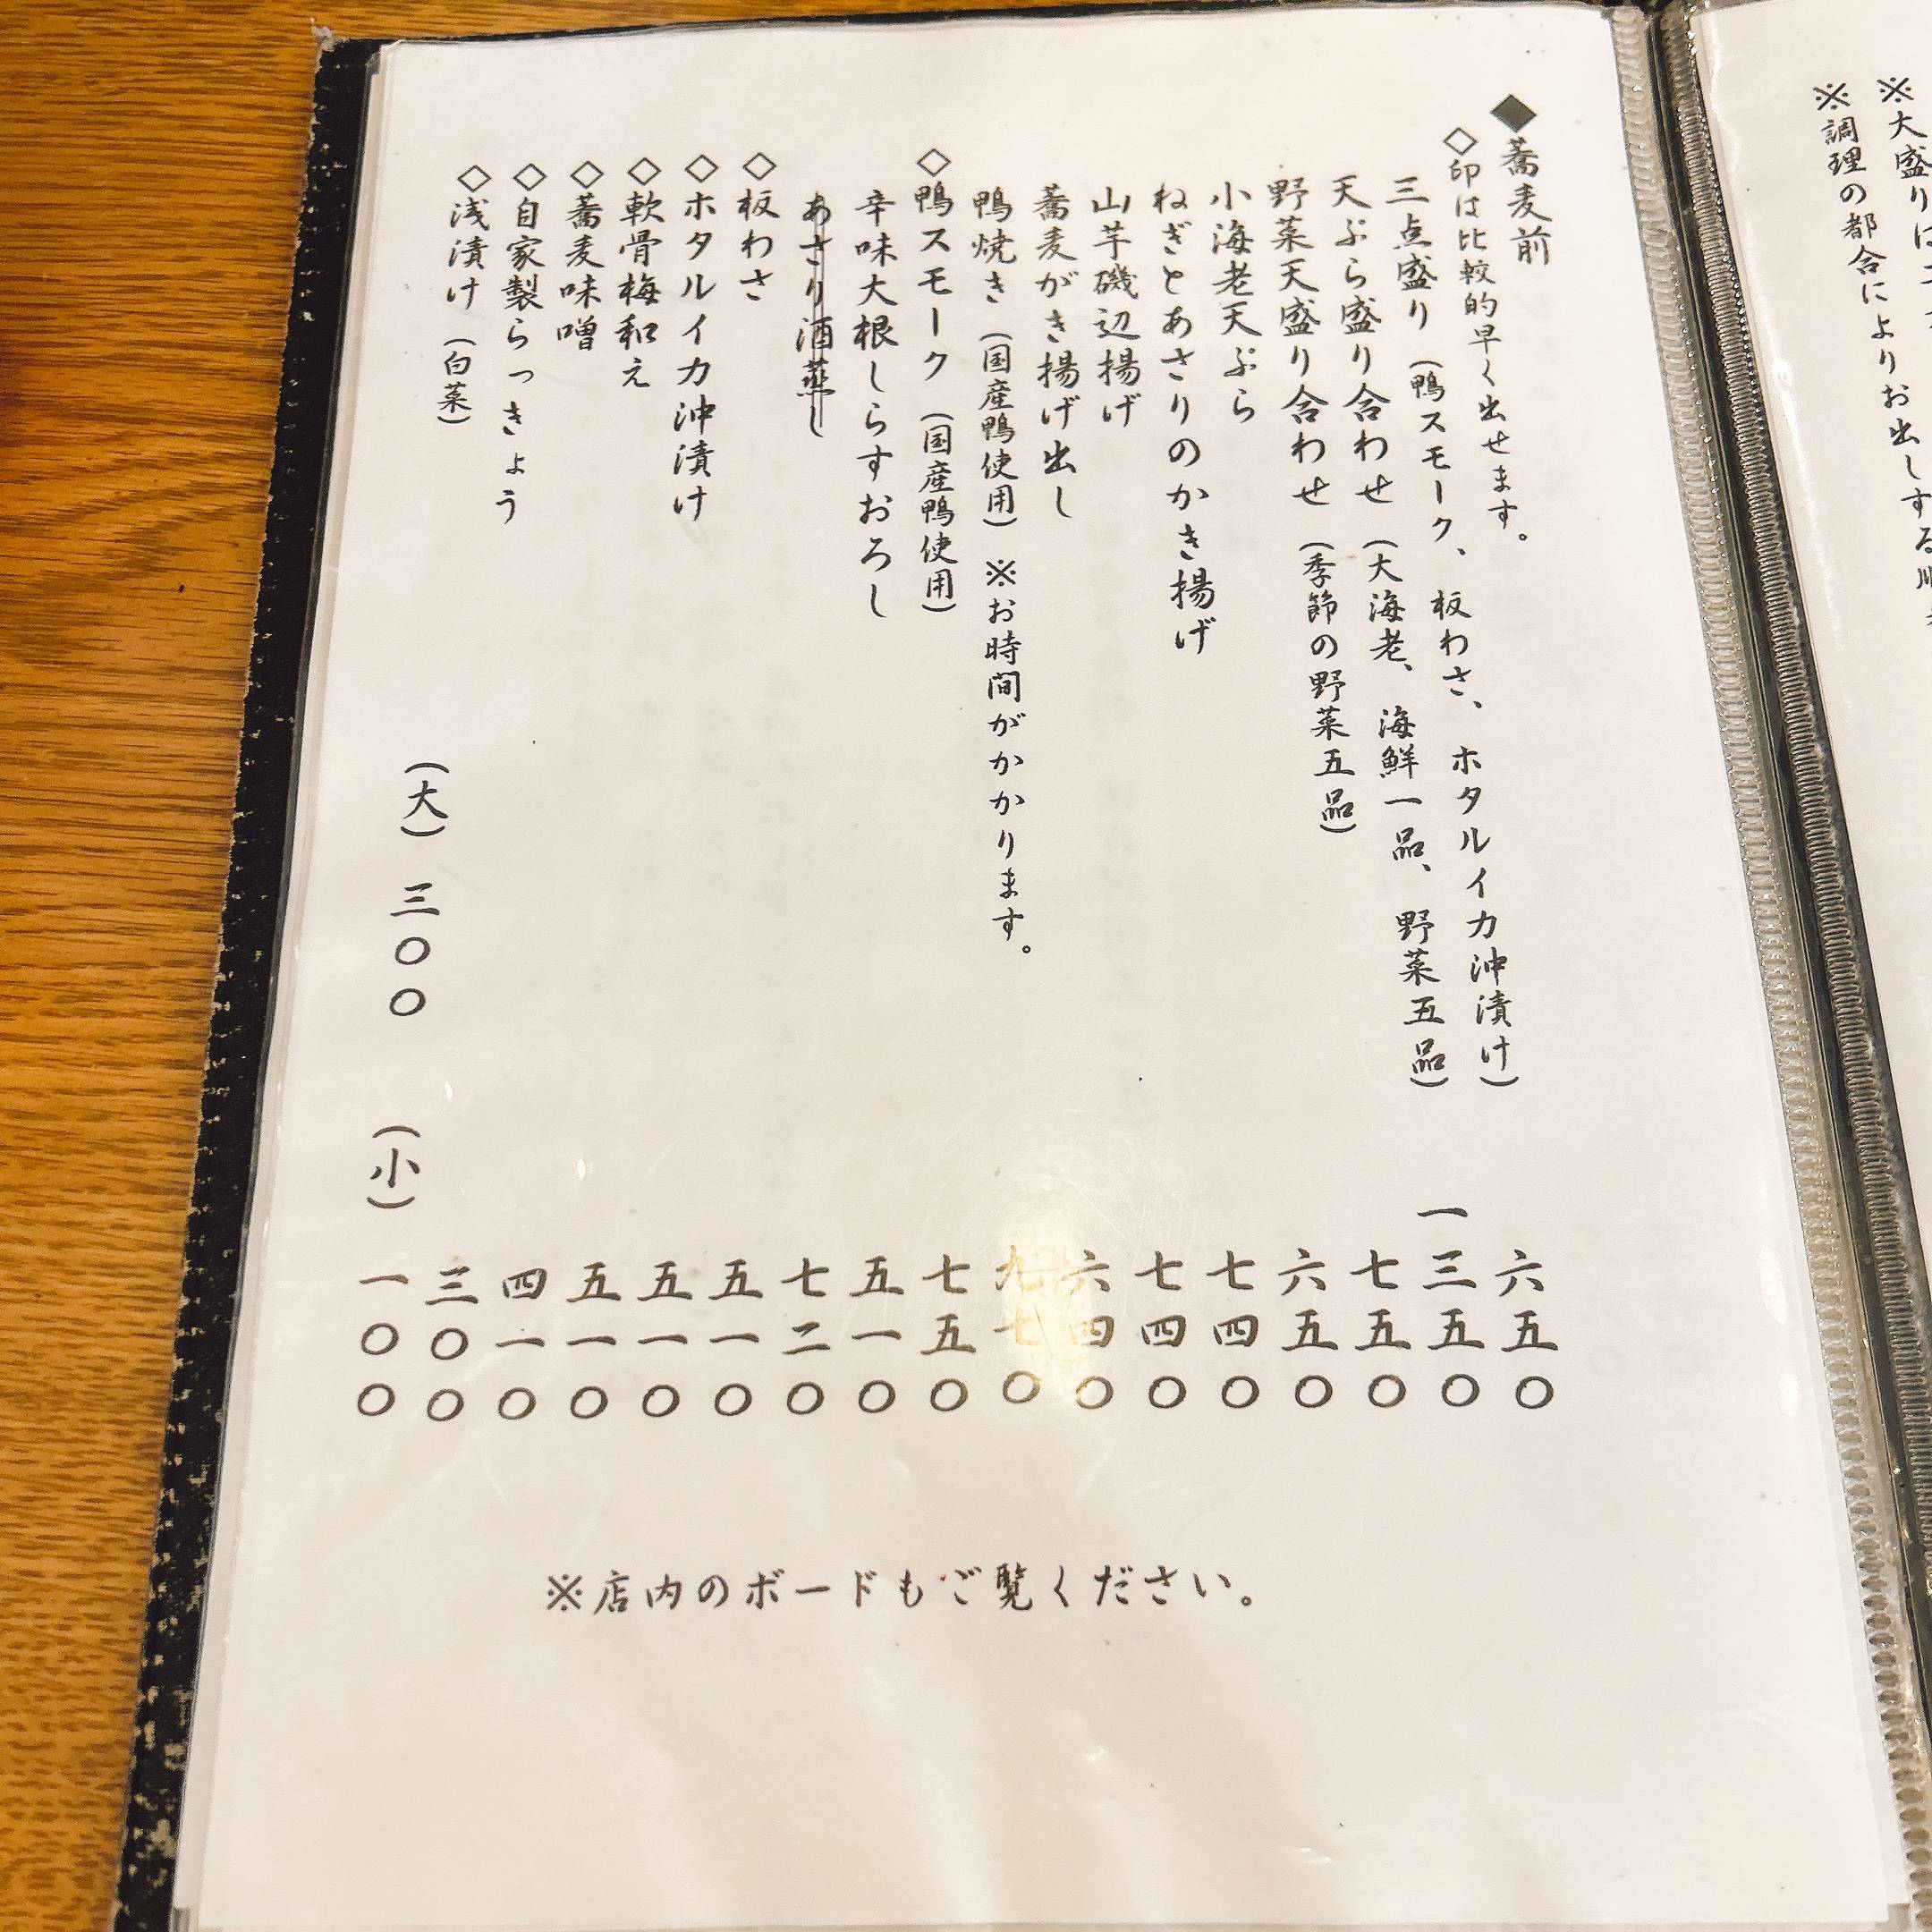 ※大盛りは
※調理の都合によりお出しする
◆蕎麦前
◇印は比較的早く出せます。
三点盛り（鴨スモーク、板わさ、ホタルイカ沖漬け） 六五〇
天ぷら盛り合わせ（大海老、海鮮一品、野菜五品） 一三五〇
野菜天盛り合わせ（季節の野菜五品） 七五〇
小海老天ぷら 六五〇
ねぎとあさりのかき揚げ 七四〇
山芋磯辺揚げ 七四〇
蕎麦がき揚げ出し 六四〇
鴨焼き（国産鴨使用）※お時間がかかります。 九七〇
◇鴨スモーク（国産鴨使用） 七五〇
辛味大根しらすおろし 五一〇
あさり酒蒸し 七二〇
◇板わさ 五一〇
◇ホタルイカ沖漬け 五一〇
◇軟骨梅和え 五一〇
◇蕎麦味噌 四一〇
◇自家製らっきょう 三〇〇
◇浅漬け（白菜） （大）三〇〇 （小）一〇〇
※店内のボードもご覧ください。